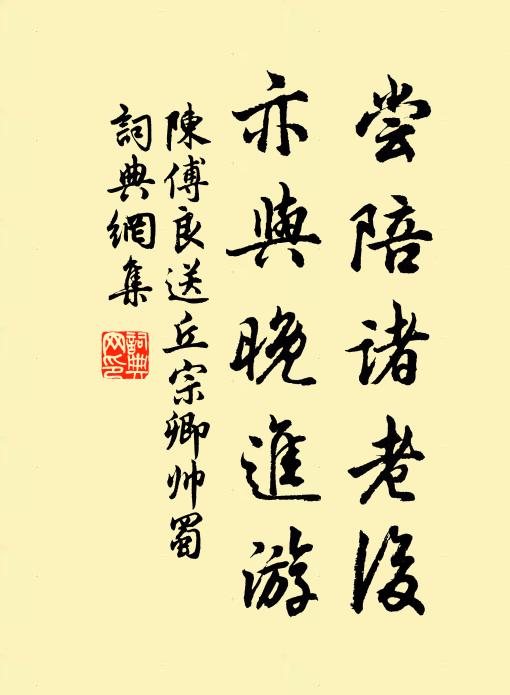 尝陪诸老後
亦與晚進游
陳傅良送丘宗卿帅蜀
詞典網集
詞典网印